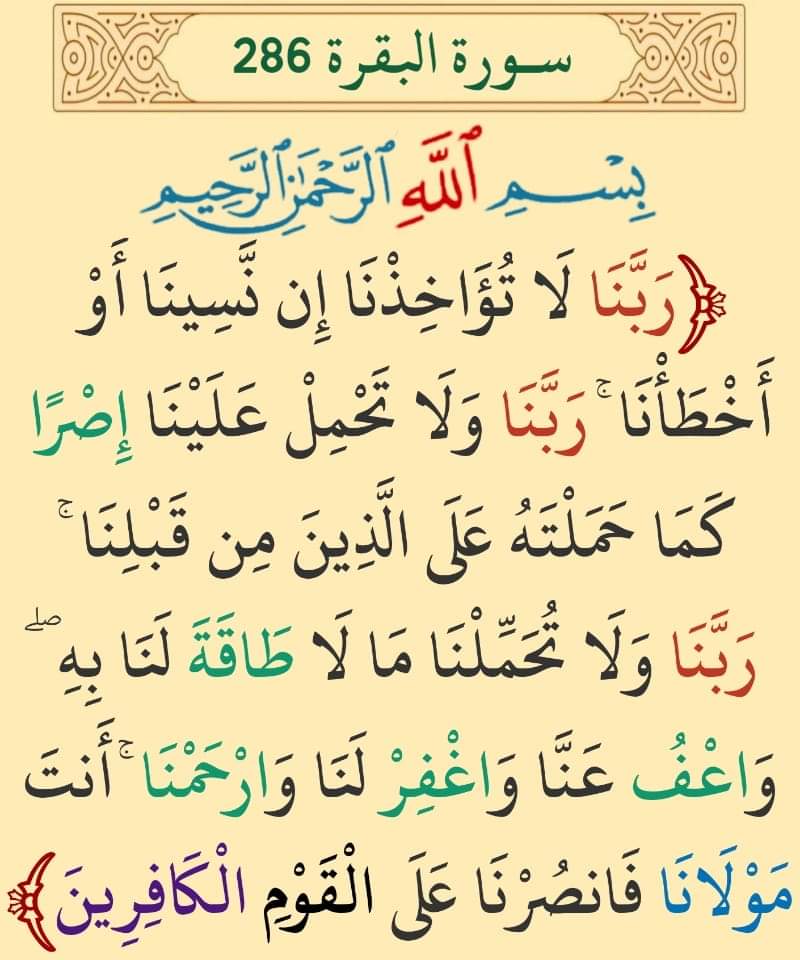 سورة البقرة 286
بِسْمِ ٱللَّهِ ٱلرَّحْمَٰنِ ٱلرَّحِيمِ
﴿رَبَّنَا لَا تُؤَاخِذْنَا إِن نَّسِينَا أَوْ
أَخْطَأْنَا ۚ رَبَّنَا وَلَا تَحْمِلْ عَلَيْنَا إِصْرًا
كَمَا حَمَلْتَهُ عَلَى الَّذِينَ مِن قَبْلِنَا ۚ
رَبَّنَا وَلَا تُحَمِّلْنَا مَا لَا طَاقَةَ لَنَا بِهِ ۖ
وَاعْفُ عَنَّا وَاغْفِرْ لَنَا وَارْحَمْنَا ۚ أَنتَ
مَوْلَانَا فَانصُرْنَا عَلَى الْقَوْمِ الْكَافِرِينَ﴾